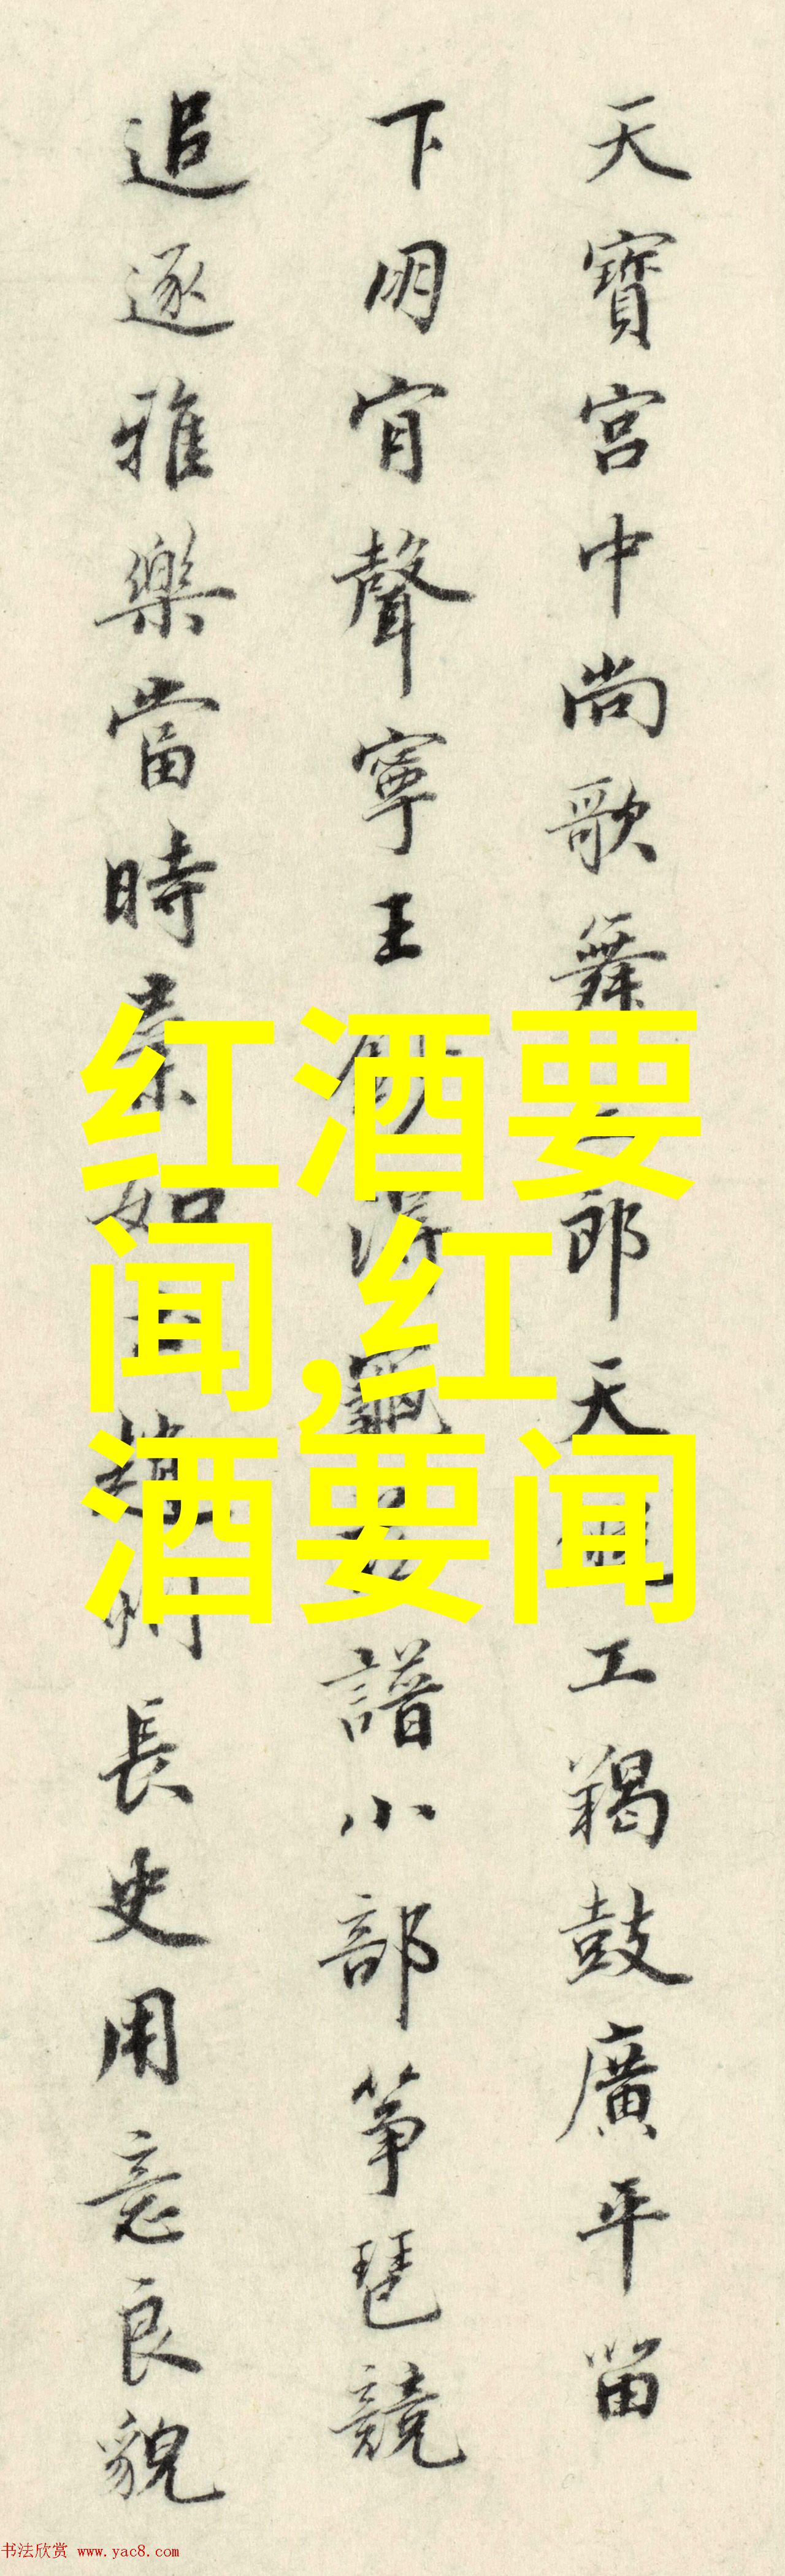 天寶宮中尚歌舞郎天工羯鼓廣平留
下明宵聲寧王譜小部箏琶競
追逐雅樂當時長史用意良貌
红酒要
闻,红
酒要闻
书法欣赏 www.yac8.com